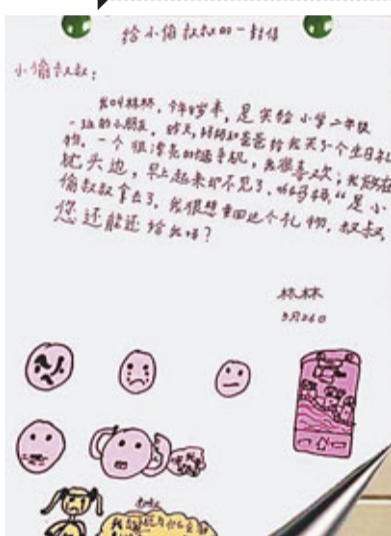 给小偷叔叔的一封信
小偷叔叔:
我叫林林,今年8岁半,是实验小学二年级
一班的小朋友,昨天,妈妈和爸爸给我买了一个生日礼
物,一个很漂亮的手机,我很喜欢;我放在
枕头边,早上起来却不见了,妈妈“是小
偷叔叔拿去了,我很想要回这个礼物,叔叔
您还能还给我吗?
林林
3月26日